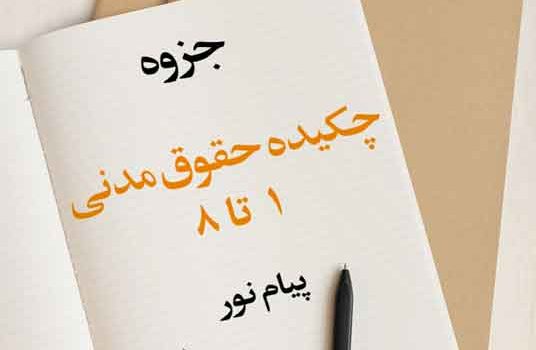 جزوه
چکیده حقوق مدنی
۱ تا ۸
پیام نور